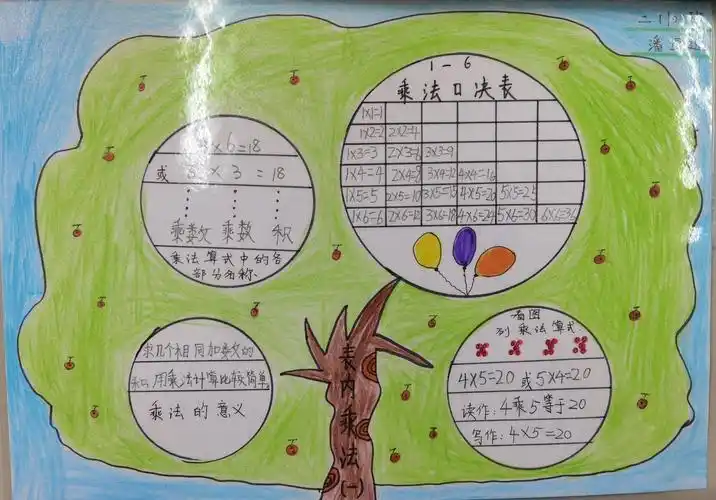 二(1)班
潘
1-6
乘法口决表
1×1=1
1×2=2 2×2=4
1×3=3 2×3=6 3×3=9
1×4=4 2×4=8 3×4=12 4×4=16
1×5=5 2×5=10 3×5=15 4×5=20 5×5=25
1×6=6 2×6=12 3×6=18 4×6=24 5×6=30 6×6=36
×6=18
或 × 3 = 18
乘数 乘数 积
乘法算式中的各
部分名称.
求几个相同加数的
和,用乘法计算比较简单.
乘法的意义
表内乘法(一)
看图
列乘法算式
4×5=20 或 5×4=20
读作:4乘5等于20
写作:4×5=20